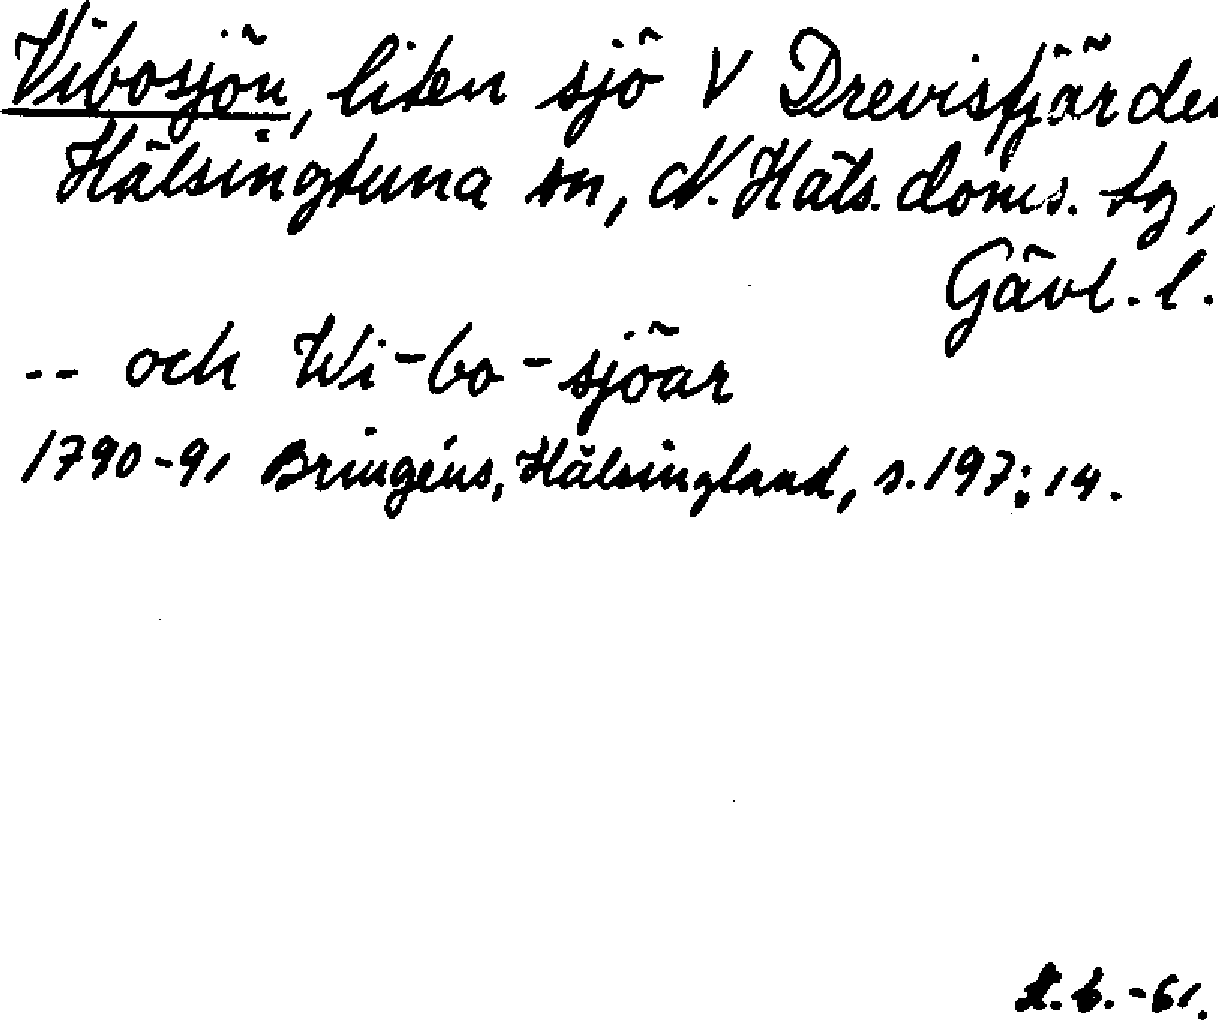 Vibosjön, liten sjö V Drevisfjärden
Hälsingtuna sn, N. Häls. doms. tg,
Gävl. l.
-- och Wi-bo-sjöar
1790-91 Bringéus, Hälsingland, s. 197:14.
-61.